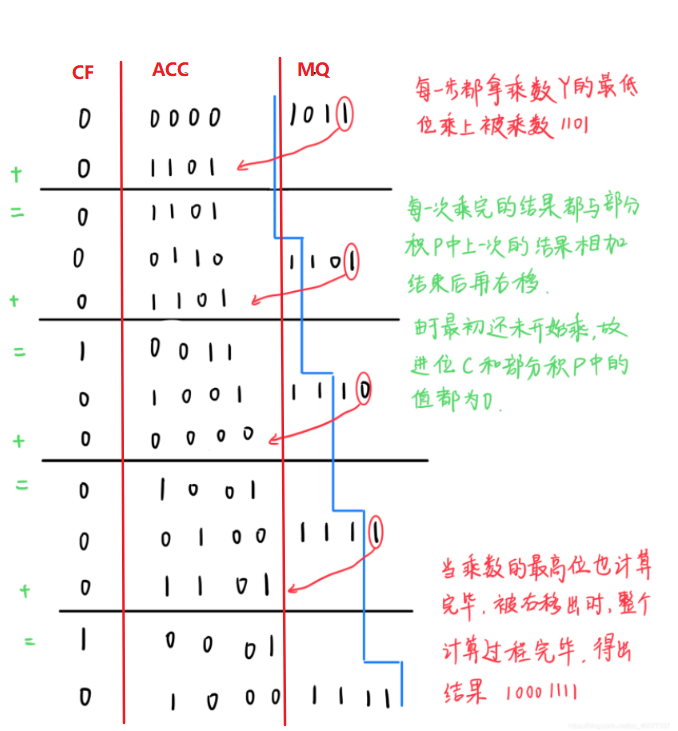 CF ACC MQ
0 0000 1011
+ 0 1101
= 0 1101
0 0110 1101
+ 0 1101
= 1 0011
0 1001 1110
+ 0 0000
= 0 1001
0 0100 1111
+ 0 1101
= 1 0001
0 1000 1111
每一步都拿乘数Y的最低
位乘上被乘数1101
每一次乘完的结果都与部分
积P中上一次的结果相加
结束后再右移.
由于最初还未开始乘,故
进位C和部分积P中的
值都为0.
当乘数的最高位也计算
完毕,被右移出时,整个
计算过程完毕,得出
结果 10001111